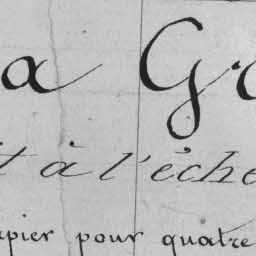 a G
t à l'éche
pier pour quatre